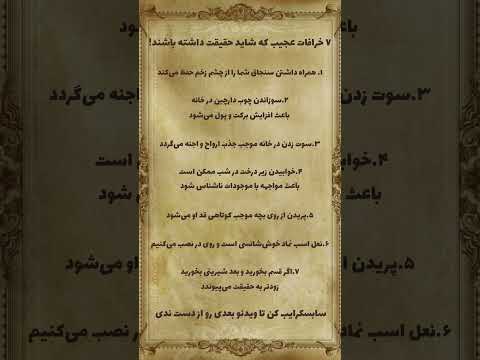 ۷ خرافات عجیب که شاید حقیقت داشته باشند!
۱. همراه داشتن سنجاق شما را از چشم زخم حفظ می‌کند
۲.سوزاندن چوب دارچین در خانه
باعث افزایش برکت و پول می‌شود
۳.سوت زدن در خانه موجب جذب ارواح و اجنه می‌گردد
۴.خوابیدن زیر درخت در شب ممکن است
باعث مواجهه با موجودات ناشناس شود
۵.پریدن از روی بچه موجب کوتاهی قد او می‌شود
۶.نعل اسب نماد خوش‌شانسی است و روی در نصب می‌کنیم
۷.اگر قسم بخورید و بعد شیرینی بخورید
زودتر به حقیقت می‌پیوندد
سابسکرایب کن تا ویدئو بعدی رو از دست ندی
۳.سوت زدن
اجنه می‌گردد
۴.خ
است
باعث
شود
۵.پریدن از
او می‌شود
۶.نعل اسب نماد
در نصب می‌کنیم